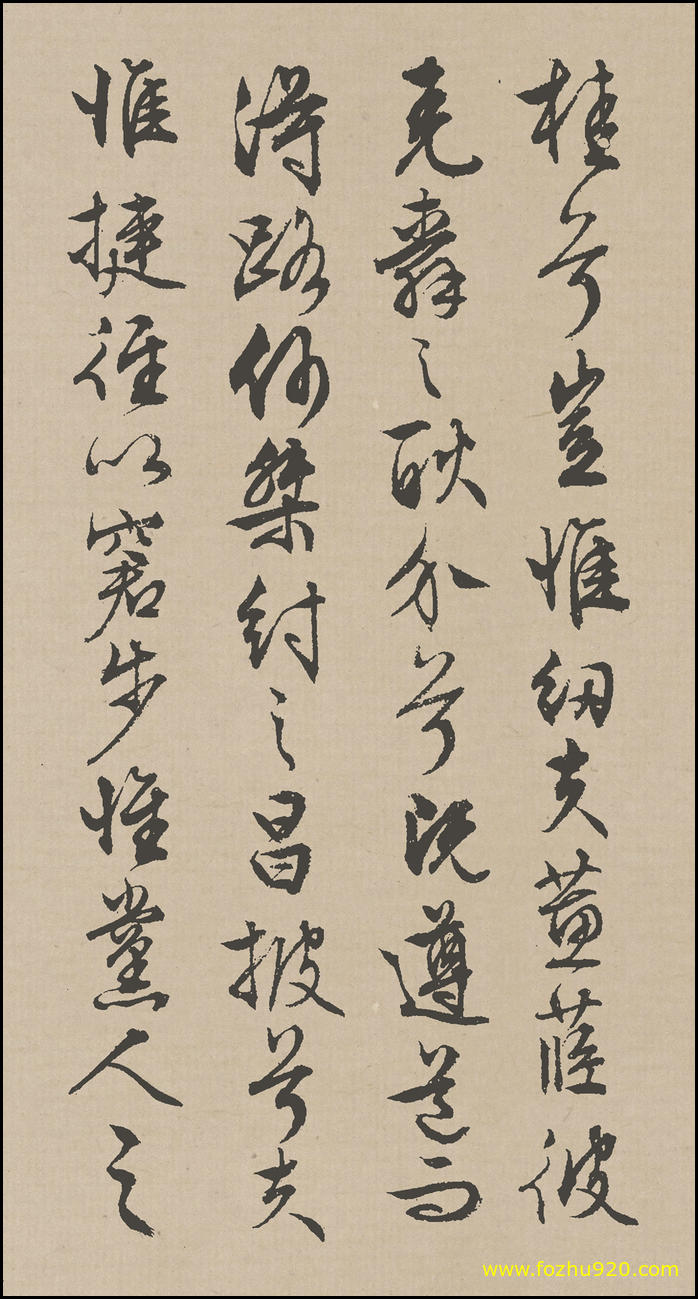 桂兮豈惟紉夫蕙茝彼
堯舜之耿介兮既遵道而
得路何桀紂之昌披兮夫
惟捷徑以窘步惟黨人之
www.fozhu920.com